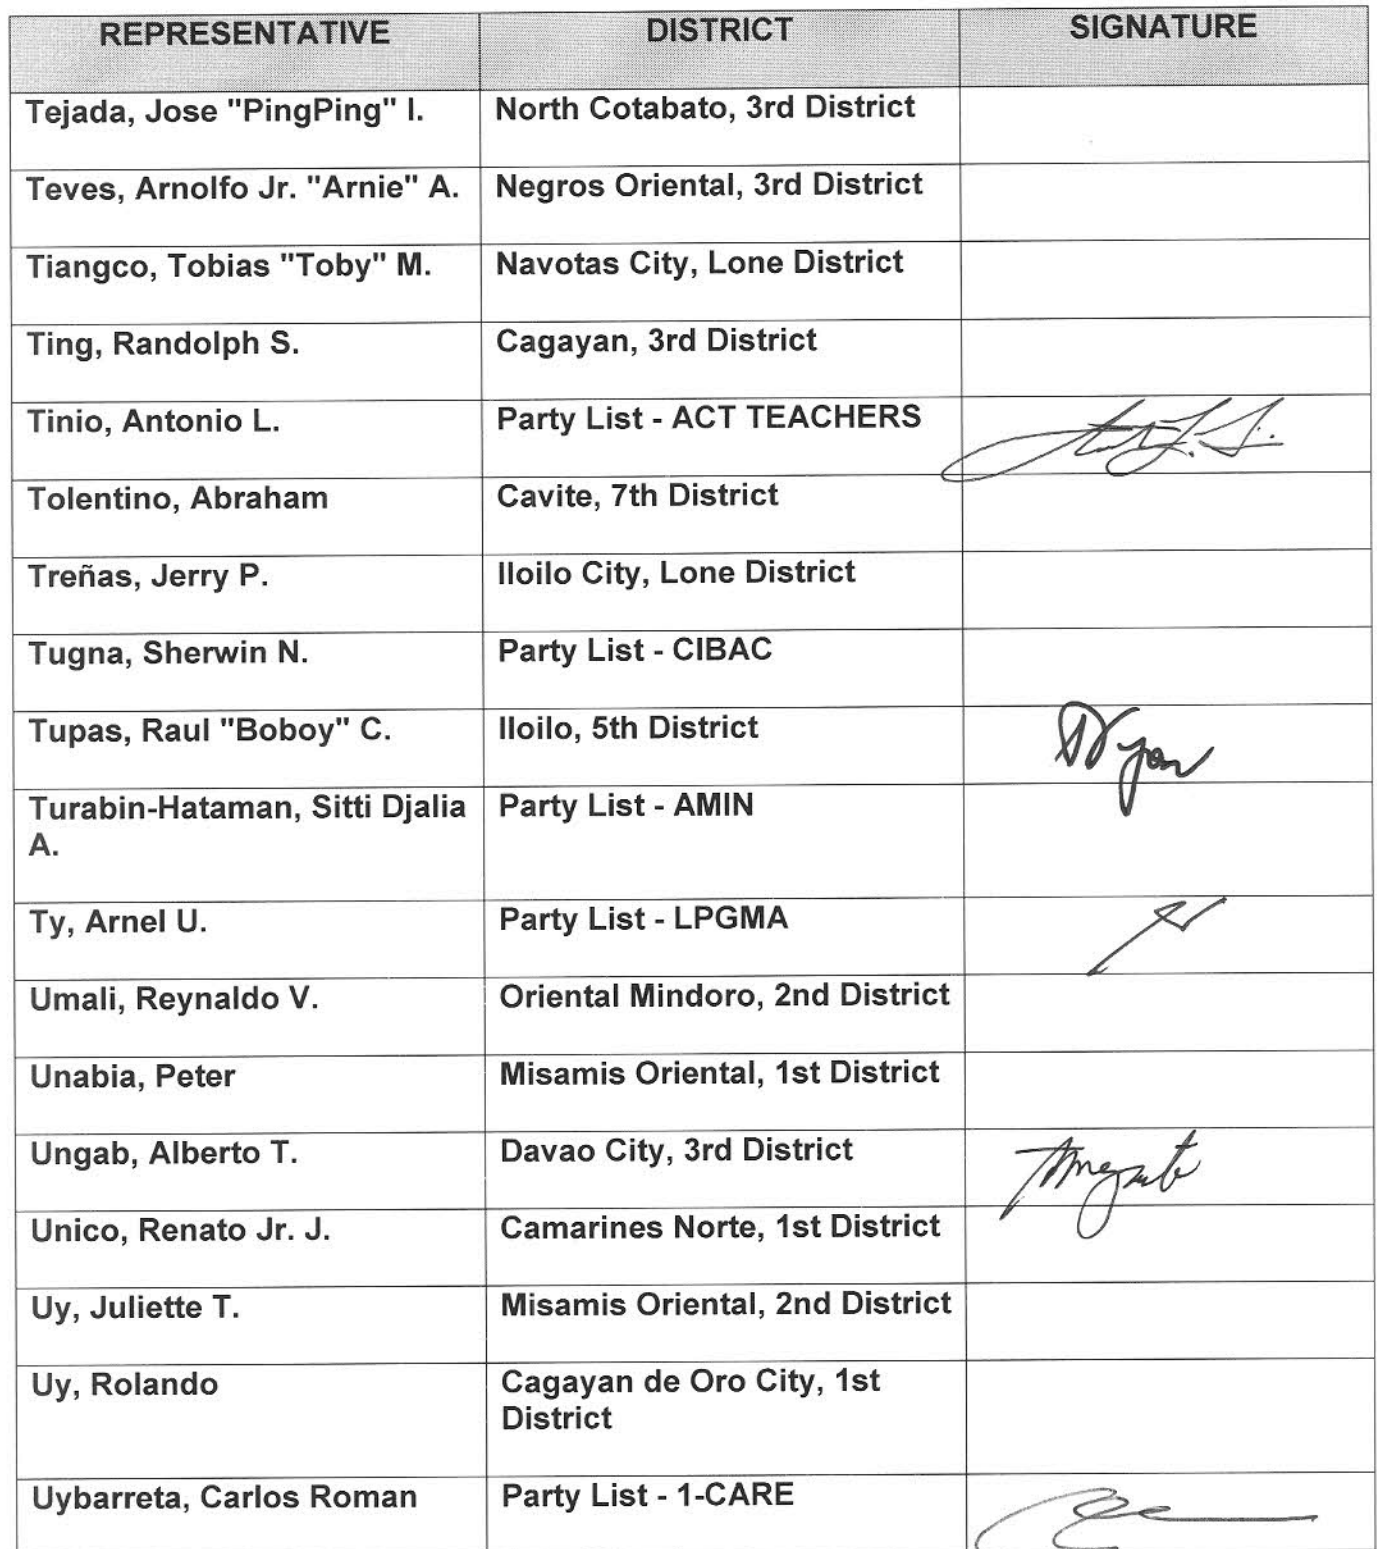 REPRESENTATIVE DISTRICT SIGNATURE
Tejada, Jose "PingPing" I. North Cotabato, 3rd District
Teves, Arnolfo Jr. "Arnie" A. Negros Oriental, 3rd District
Tiangco, Tobias "Toby" M. Navotas City, Lone District
Ting, Randolph S. Cagayan, 3rd District
Tinio, Antonio L. Party List - ACT TEACHERS
Tolentino, Abraham Cavite, 7th District
Treñas, Jerry P. Iloilo City, Lone District
Tugna, Sherwin N. Party List - CIBAC
Tupas, Raul "Boboy" C. Iloilo, 5th District
Turabin-Hataman, Sitti Djalia Party List - AMIN
A.
Ty, Arnel U. Party List - LPGMA
Umali, Reynaldo V. Oriental Mindoro, 2nd District
Unabia, Peter Misamis Oriental, 1st District
Ungab, Alberto T. Davao City, 3rd District
Unico, Renato Jr. J. Camarines Norte, 1st District
Uy, Juliette T. Misamis Oriental, 2nd District
Uy, Rolando Cagayan de Oro City, 1st
District
Uybarreta, Carlos Roman Party List - 1-CARE